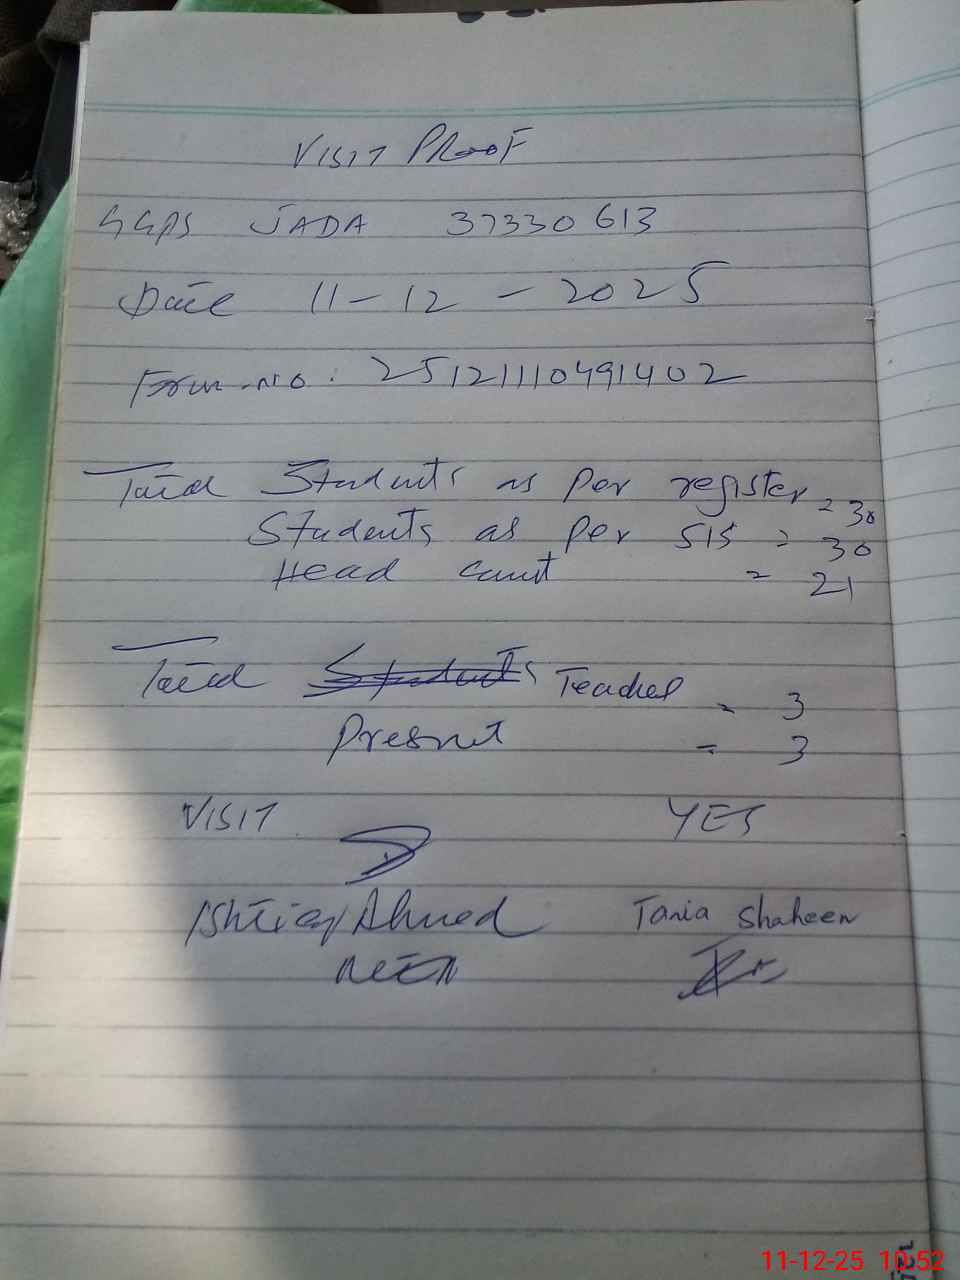 VISIT PROOF
GGPS JADA 37330613
Date 11-12-2025
Form-no: 25121110491402
Total Students as per register = 30
Students as per SIS = 30
Head count = 21
Total Students Teacher = 3
Presnet = 3
VISIT YES
Ishtiaq Ahmed Tania Shaheen
11-12-25 10:52